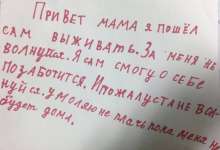 ПРИВЕТ МАМА Я ПОШЁЛ
САМ ВЫЖИВАТЬ. ЗА МЕНЯ НЕ
ВОЛНУЙСЯ. Я САМ СМОГУ О СЕБЕ
ПОЗАБОТИТСЯ. И ПОЖАЛУСТА НЕ
НУЙСЯ. УМОЛЯЮ НЕ ПОКА МЕНЯ
БУДЕТ ДОМА.